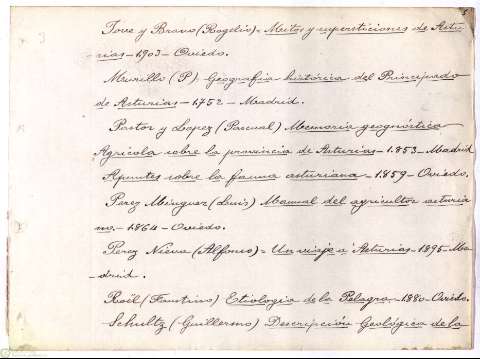 5
Jove y Bravo (Rogelio) = Mitos y supersticiones de Astu-
-rias - 1903 - Oviedo.
Murillo (P) Geografia histórica del Principado
de Asturias - 1752 - Madrid.
Pastor y Lopez (Pascual) Memoria geognóstica
Agricola sobre la provincia de Asturias - 1853 - Madrid
Apuntes sobre la fauna asturiana - 1859 - Oviedo.
Perez Minguez (Luis) Manual del agricultor asturia
no. - 1864 - Oviedo.
Perez Nieva (Alfonso) = Un viaje a Asturias - 1895 - Ma-
-drid.
Roël (Faustino) Etiologia de la Pelagra - 1880 - Oviedo.
Schultz (Guillermo) Descripción Geológica de la